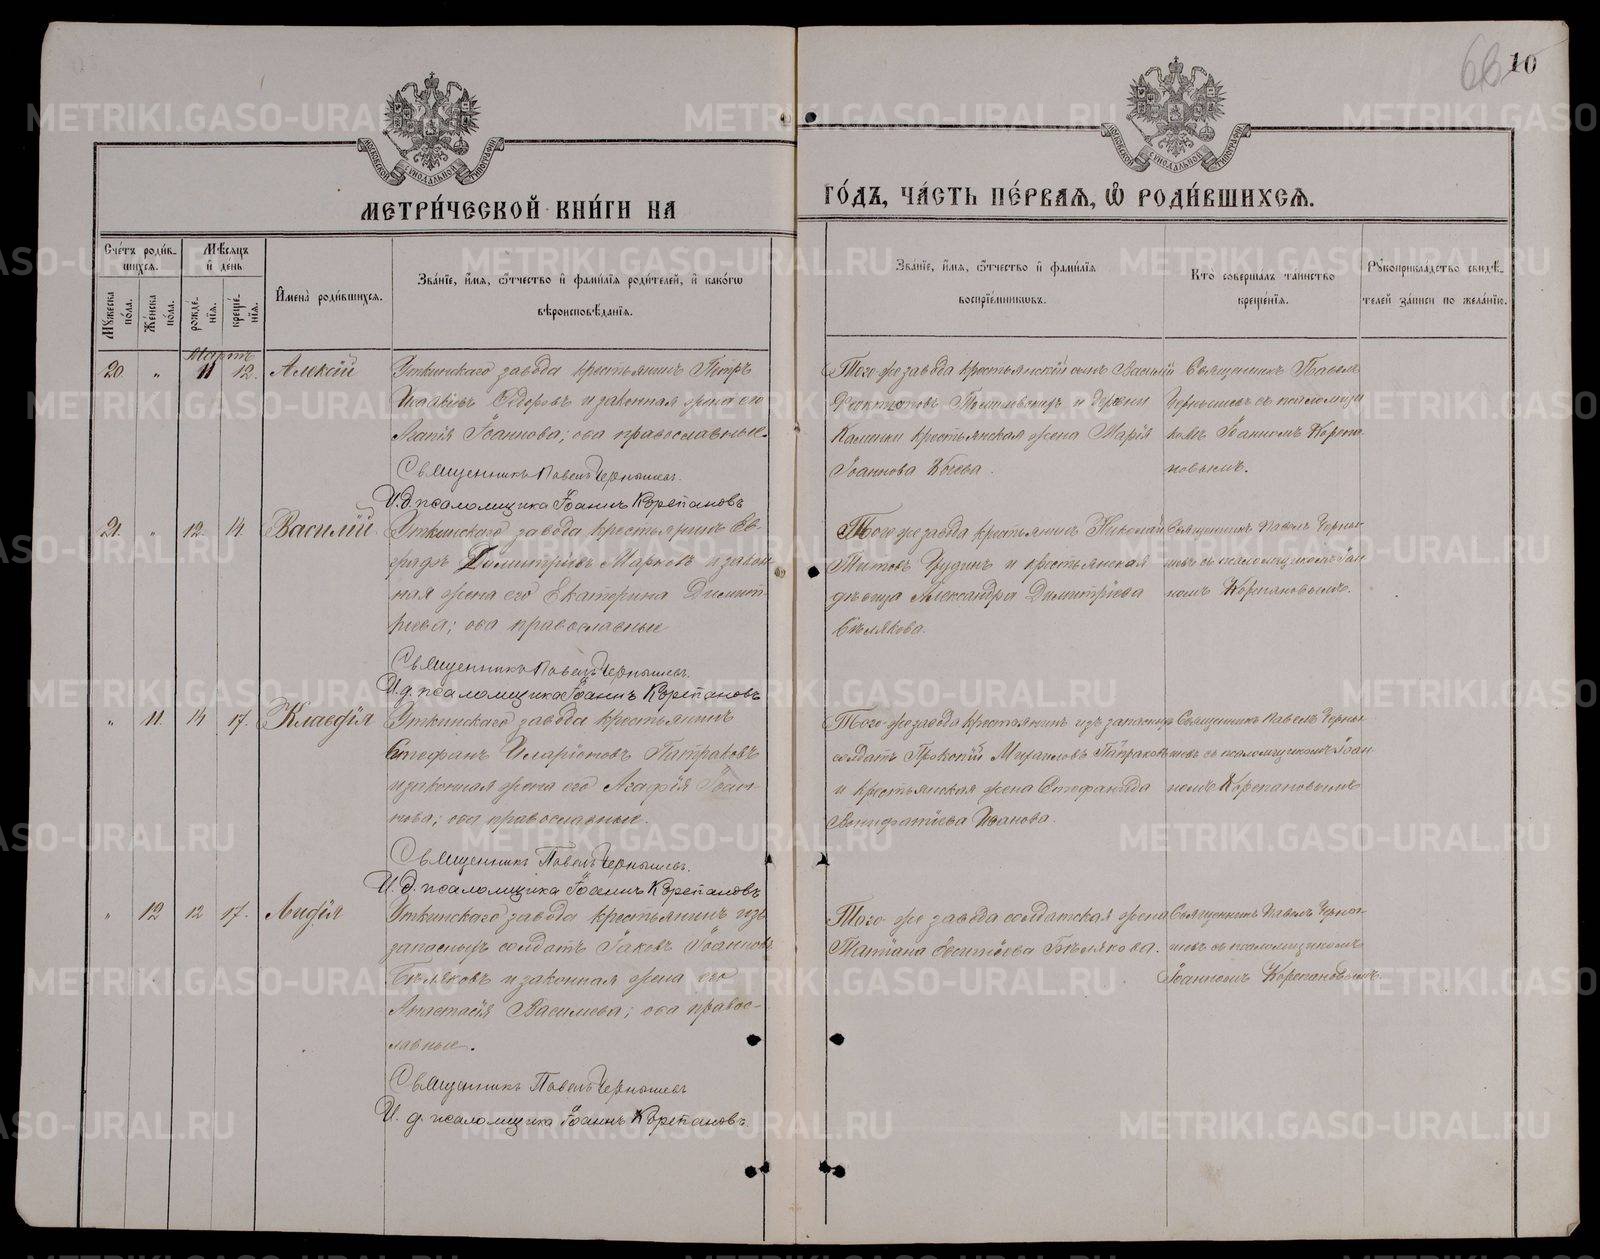 66 10
МОСКОВСКОЙ СѴНОДАЛЬНОЙ ТИПОГРАФІИ
МОСКОВСКОЙ СѴНОДАЛЬНОЙ ТИПОГРАФІИ
МЕТРИ́ЧЕСКОЙ КНИ́ГИ НА
ГО́ДЪ, ЧА́СТЬ ПЕ́РВАѦ, Ѿ РОДИ́ВШИХСѦ.
Сче́тъ роди́в-
шихся.
Мѣ́сяцъ
и҆ день
Мꙋ́жеска по́ла.
Же́нска по́ла.
рожде́-
нїѧ.
креще́-
нїѧ.
И҆мена̀ роди́вшихся.
Зва́нїе, и҆́мѧ, ѻ҆́тчество и҆ фами́лїѧ роди́телей, и҆ како́гѡ
вѣроисповѣ́данїѧ.
Зва́нїе, и҆́мѧ, ѻ҆́тчество и҆ фами́лїѧ
воспрїе́мниковъ.
Кто̀ соверша́лъ та́инство
креще́нїѧ.
Рꙋкоприкла́дство свидѣ́-
телей за́писи по жела́нїю.
Мартъ
20. " 11 12. Алексій
Уткинскаго завода крестьянинъ Петръ
Исааковъ Ѳедоровъ и законная жена его
Агапія Іоаннова; оба православные.
Священникъ Павелъ Чернышевъ.
И. д. псаломщика Іоаннъ Корепановъ
Того-же завода крестьянскій сынъ Василій
Ѳеоктистовъ и деревни
Каменки крестьянская жена Марія
Іоаннова
Священникъ Павелъ
Чернышевъ съ псаломщи
комъ Іоанномъ Корепа-
новымъ.
21. " 12. 14. Василій.
Уткинскаго завода крестьянинъ Ев-
графъ Димитріевъ Марковъ и закон-
ная жена его Екатерина Димит-
ріева; оба православные
Священникъ Павелъ Чернышевъ.
И. д. псаломщика Іоаннъ Корепановъ
Того-же завода крестьянинъ Николай
Титовъ Чудинъ и крестьянская
дѣвица Александра Димитріева
Бѣлякова.
Священникъ Павелъ Черны-
шевъ съ псаломщикомъ Іоан-
номъ Корепановымъ.
" 11. 14 17. Клавдія
Уткинскаго завода крестьянинъ
Стефанъ Иларіоновъ Патраковъ
и законная жена его Агафія Іоан-
нова; оба православные.
Священникъ Павелъ Чернышевъ.
И. д. псаломщика Іоаннъ Корепановъ
Того-же завода крестьянинъ изъ запасныхъ
солдатъ Прокопій Михаиловъ Патраковъ
и крестьянская жена Стефанида
Вонифатіева Иванова.
Священникъ Павелъ Черны-
шевъ съ псаломщикомъ Іоан-
номъ Корепановымъ
" 12 12 17. Лидія
Уткинскаго завода крестьянинъ изъ
запасныхъ солдатъ Іаковъ Іоанновъ
Бѣляковъ и законная жена его
Анастасія Васильева; оба правос-
лавные.
Священникъ Павелъ Чернышевъ
И. д. псаломщика Іоаннъ Корепановъ.
Того-же завода солдатская жена
Татіана Бѣлякова.
Священникъ Павелъ Черны-
шевъ съ псаломщикомъ
Іоанномъ Корепановымъ.
METRIKI.GASO-URAL.RU